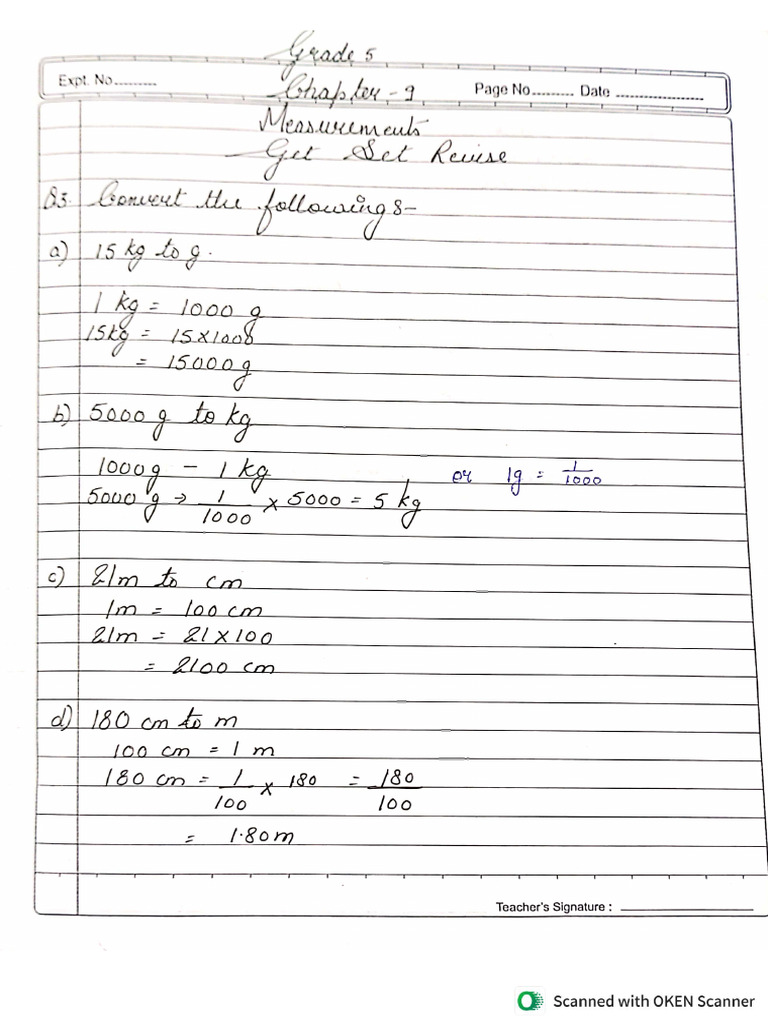 Grade 5
Expt. No.......... Chapter - 9 Page No.......... Date ....................
Measurements
Get Set Revise
Q3. Convert the following :-
a) 15 kg to g.
1 kg = 1000 g
15kg = 15 x 1000
= 15000 g
b) 5000 g to kg
1000g - 1 kg or 1g = 1/1000
5000 g → 1/1000 x 5000 = 5 kg
c) 21m to cm
1m = 100 cm
21m = 21 x 100
= 2100 cm
d) 180 cm to m
100 cm = 1 m
180 cm = 1/100 x 180 = 180/100
= 1.80m
Teacher's Signature : ____________________
Scanned with OKEN Scanner